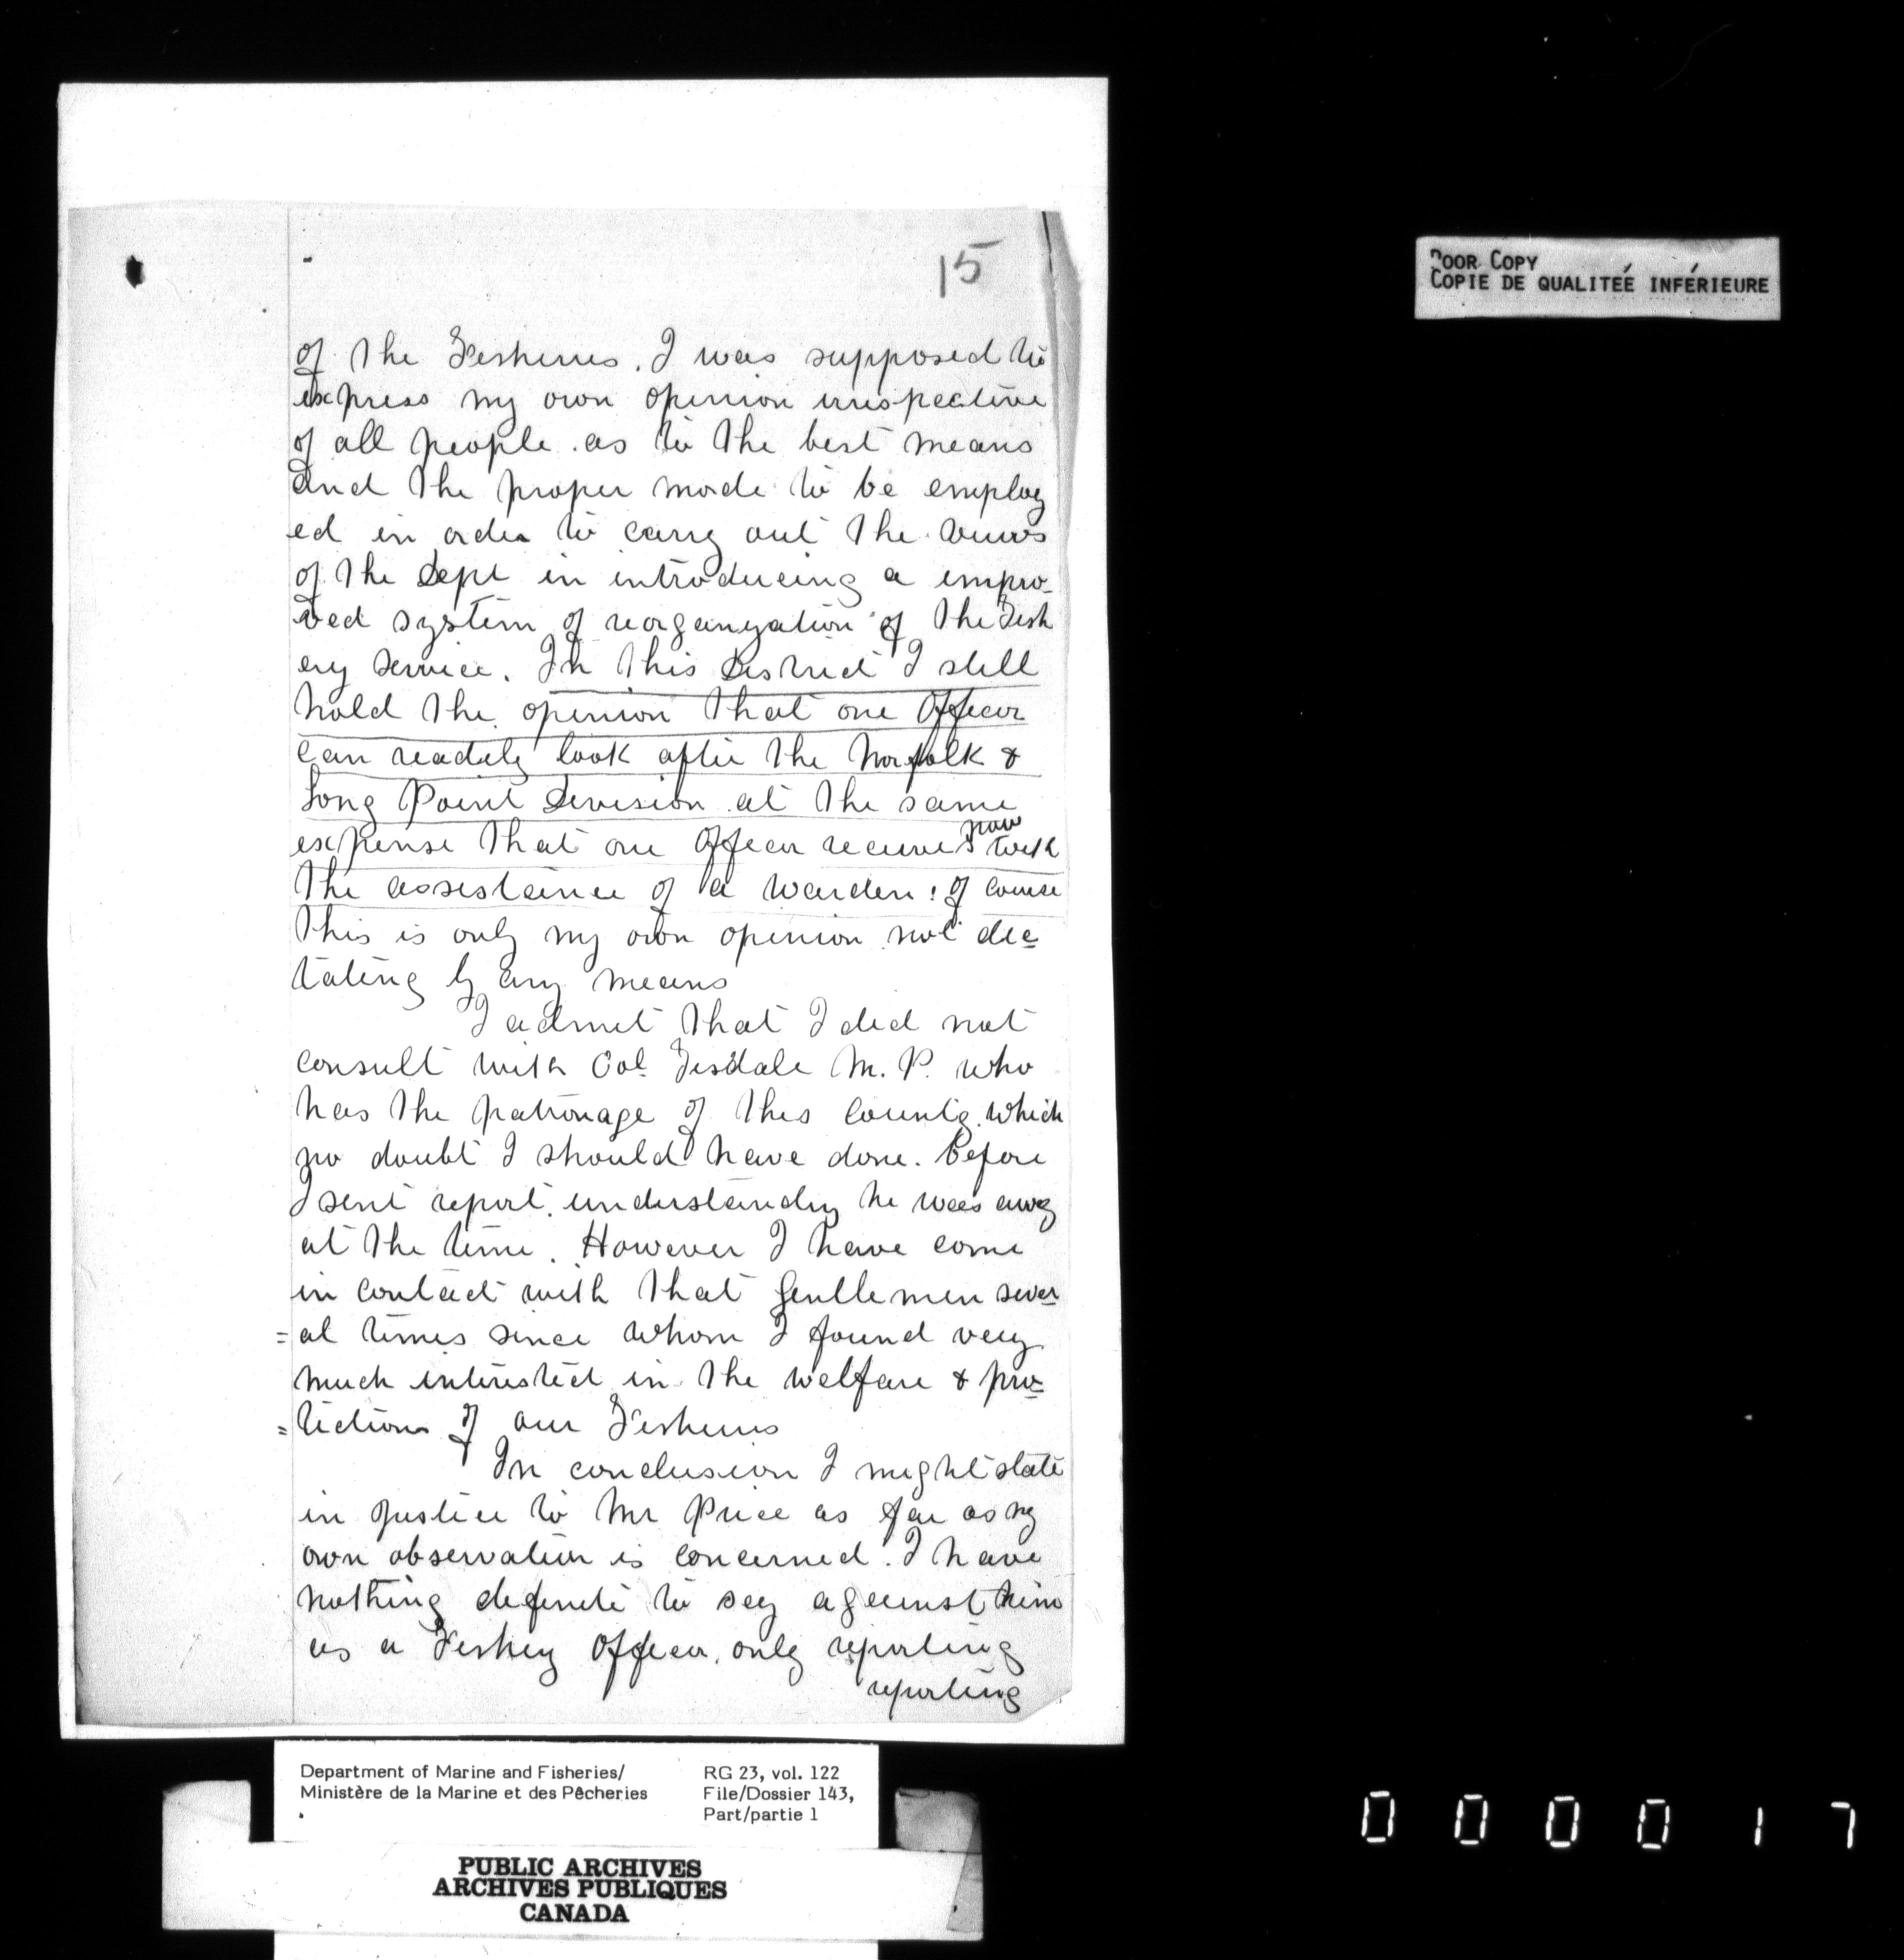 15
of the Fisheries. I was supposed to
express my own opinion irrispective
of all people as to the best means
and the proper mode to be employ
ed in order to carry out the views
of the Dept in introducing a impro-
ved system of reorganization of the Fish
ery Service. In this District I still
hold the opinion that one Officer
can readily look after the Norfolk &
Long Point Division at the same
expense that one Officer receives now with
the assistance of a warden: of course
this is only my own opinion not dic-
tating by any means
I admit that I did not
consult with Col. Tisdale M. P. who
has the patronage of this County which
no doubt I should have done. Before
I sent report. understanding he was away
at the time. However I have come
in contact with that Gentlemen sever
=al times since whom I found very
much interested in the welfare & pro-
=tection of our Fisheries
In conclusion I might state
in justice to Mr Price as far as my
own observation is concerned. I have
nothing definite to say against him
as a Fishery Officer, only reporting
reporting
POOR COPY
COPIE DE QUALITEÉ INFÉRIEURE
Department of Marine and Fisheries/
Ministère de la Marine et des Pêcheries
RG 23, vol. 122
File/Dossier 143,
Part/partie 1
PUBLIC ARCHIVES
ARCHIVES PUBLIQUES
CANADA
000017